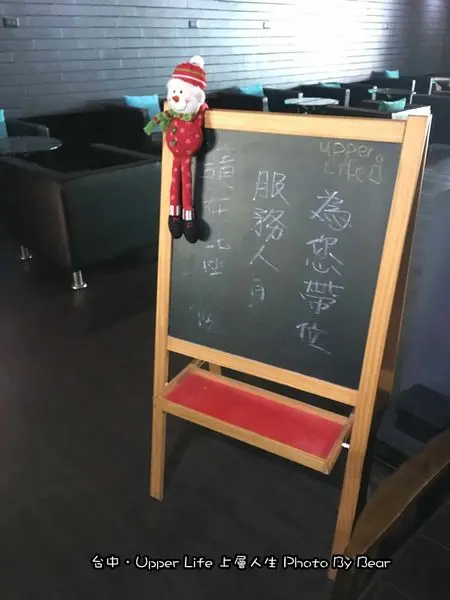 upper
Life
請在此
服務人員
為您帶位
台中·Upper Life 上層人生 Photo By Bear